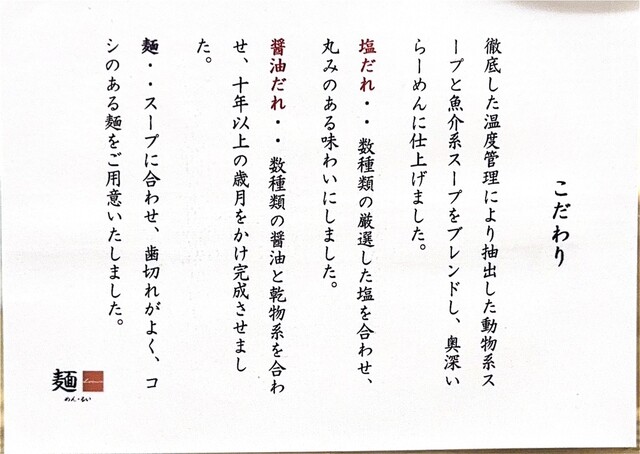 こだわり
徹底した温度管理により抽出した動物系ス
ープと魚介系スープをブレンドし、奥深い
らーめんに仕上げました。
塩だれ・・数種類の厳選した塩を合わせ、
丸みのある味わいにしました。
醤油だれ・・数種類の醤油と乾物系を合わ
せ、十年以上の歳月をかけ完成させまし
た。
麺・・スープに合わせ、歯切れがよく、コ
シのある麺をご用意いたしました。
麺